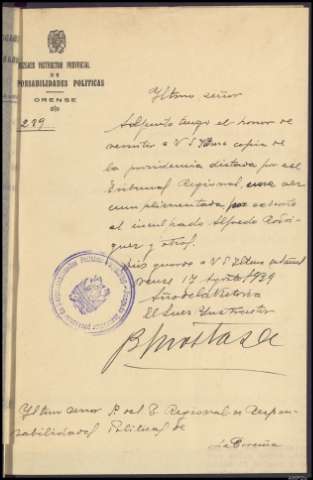 JUZGADO INSTRUCTOR PROVINCIAL
DE
RESPONSABILIDADES POLITICAS
ORENSE
289
Iltmo señor
Adjunto tengo el honor de
remitir a V S Iltma copia de
la providencia dictada por ese
Tribunal Regional, una vez
cumplimentada por cuanto
al inculpado Alfredo Rodri
guez y otros.
Dios guarde a V S Iltma
Orense 17 Agosto 1939
Año de la Victoria
El Juez Instructor
Iltmo señor P. del T. Regional de Respon
sabilidades Politicas de
La Coruña